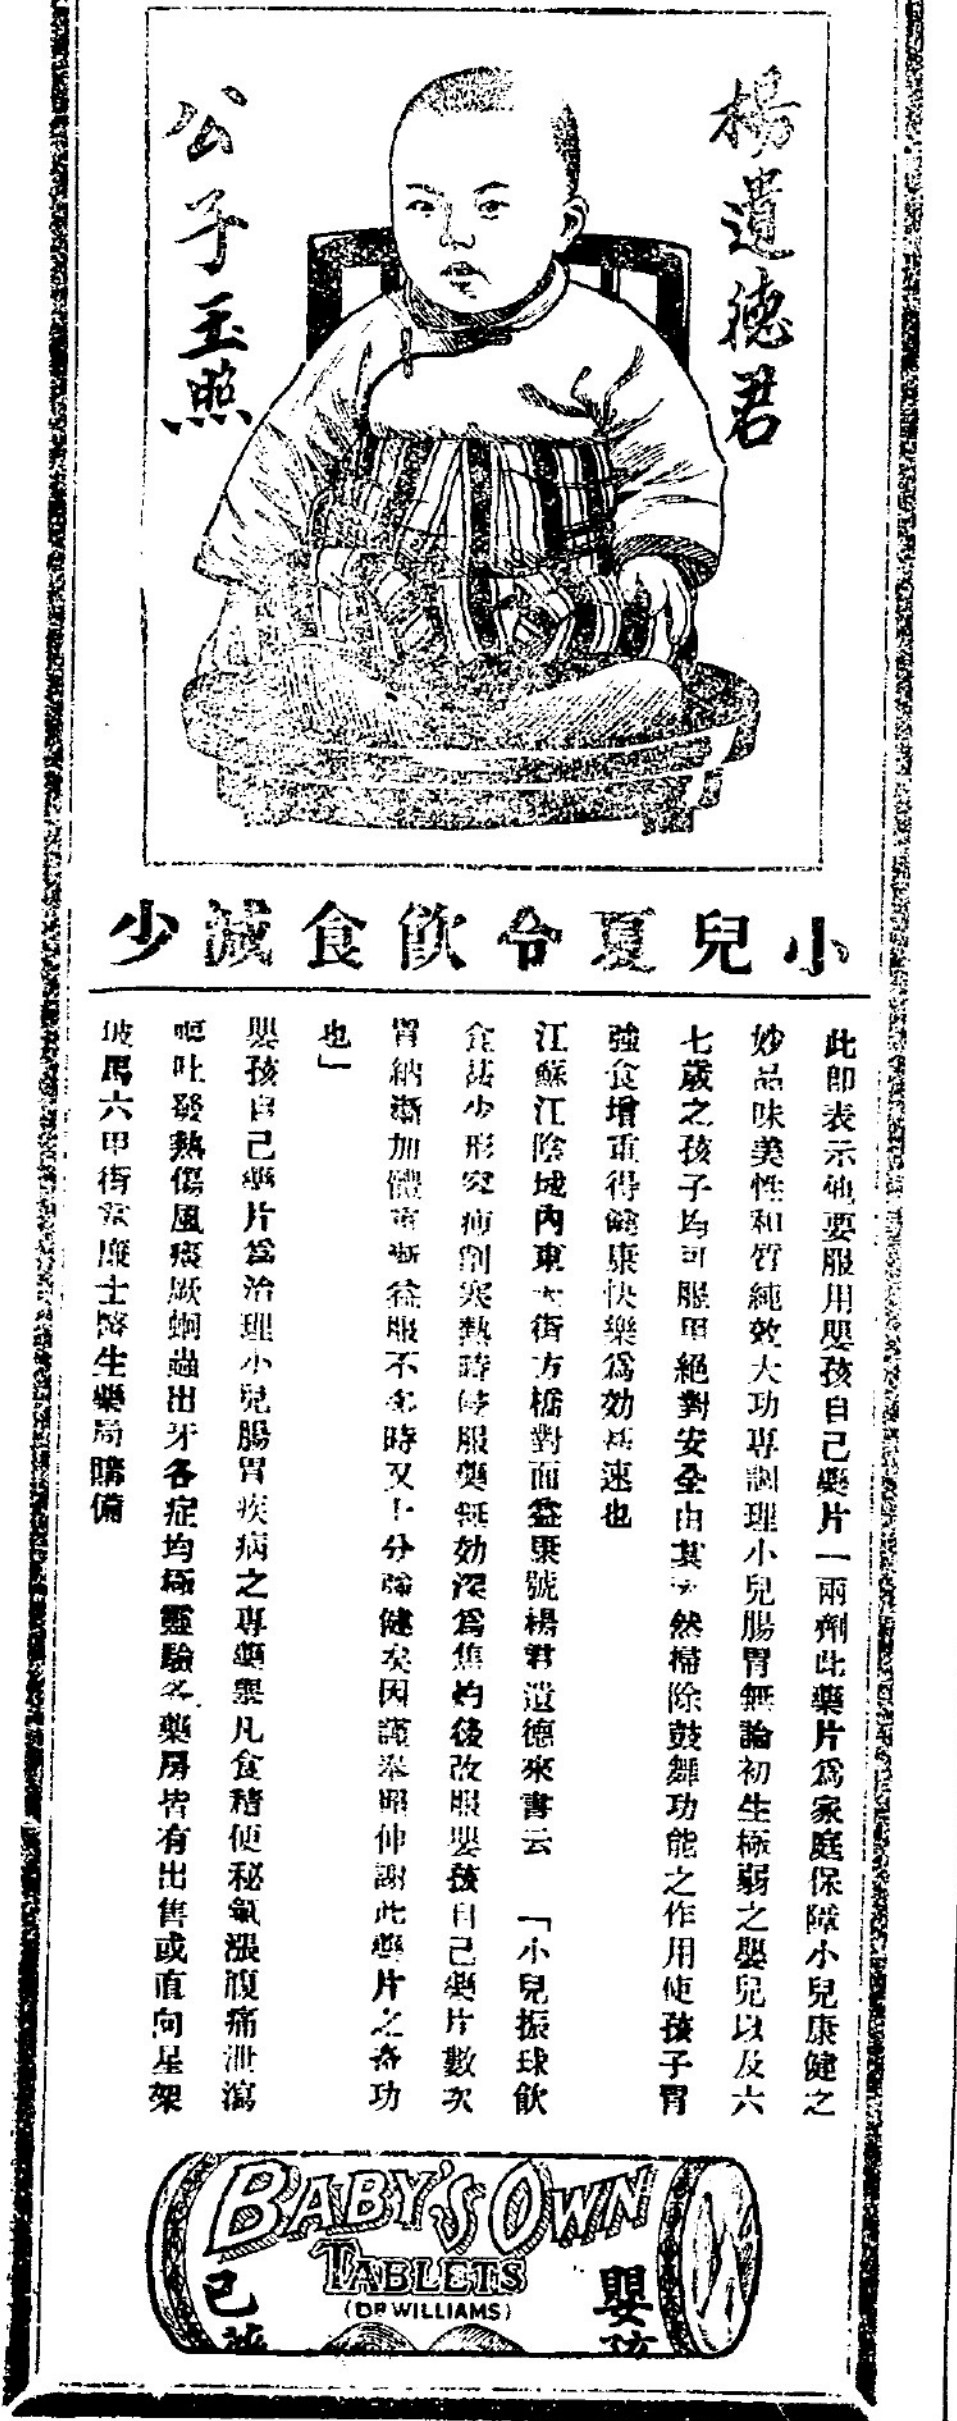 楊遺德君
公子玉照
小兒夏令飲食減少
此卽表示他要服用嬰孩自己藥片一兩劑此藥片爲家庭保障小兒康健之
妙品味美性和質純效大功專調理小兒腸胃無論初生極弱之嬰兒以及六
七歲之孩子均可服用絕對安全由其天然掃除鼓舞功能之作用使孩子胃
強食增重得健康快樂爲効甚速也
江蘇江陰城內東大街方橋對面益康號楊君遺德來書云 「小兒振球飲
食甚少形容瘦削寒熱時侵服藥無効深爲焦灼後改服嬰孩自己藥片數次
胃納漸加體重漸益服不多時又十分強健矣因謹奉照伸謝此藥片之奇功
也」
嬰孩自己藥片爲治理小兒腸胃疾病之專藥舉凡食積便秘氣漲腹痛泄瀉
嘔吐發熱傷風痰厥蛔蟲出牙各症均極靈驗各藥房皆有出售或直向星架
坡馬六甲街韋廉士醫生藥局購備
BABY'S OWN
TABLETS
(DR WILLIAMS)
嬰孩
己藥